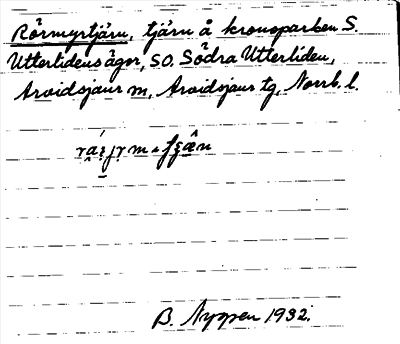 Rörmyrtjärn, tjärn å kronoparken S.
Utterlidens ägor, SO. Södra Utterliden,
Arvidsjaur m, Arvidsjaur tg, Norrb. l.
B. Nyppen 1932.